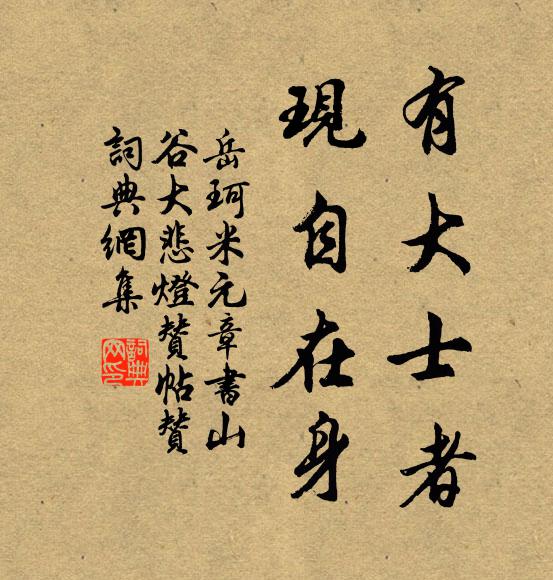 有大士者
現自在身
岳珂米元章書山
谷大悲燈贊帖贊
詞典網集
詞典網印